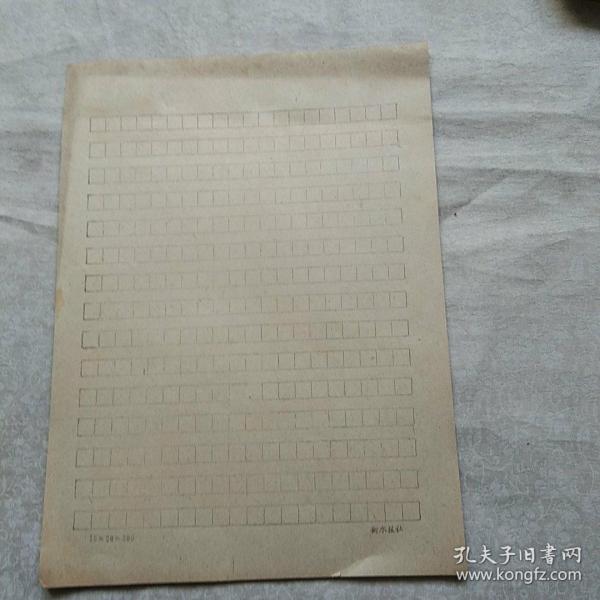 15×20=300
衡水报社
孔夫子旧書网
www.kongfz.com